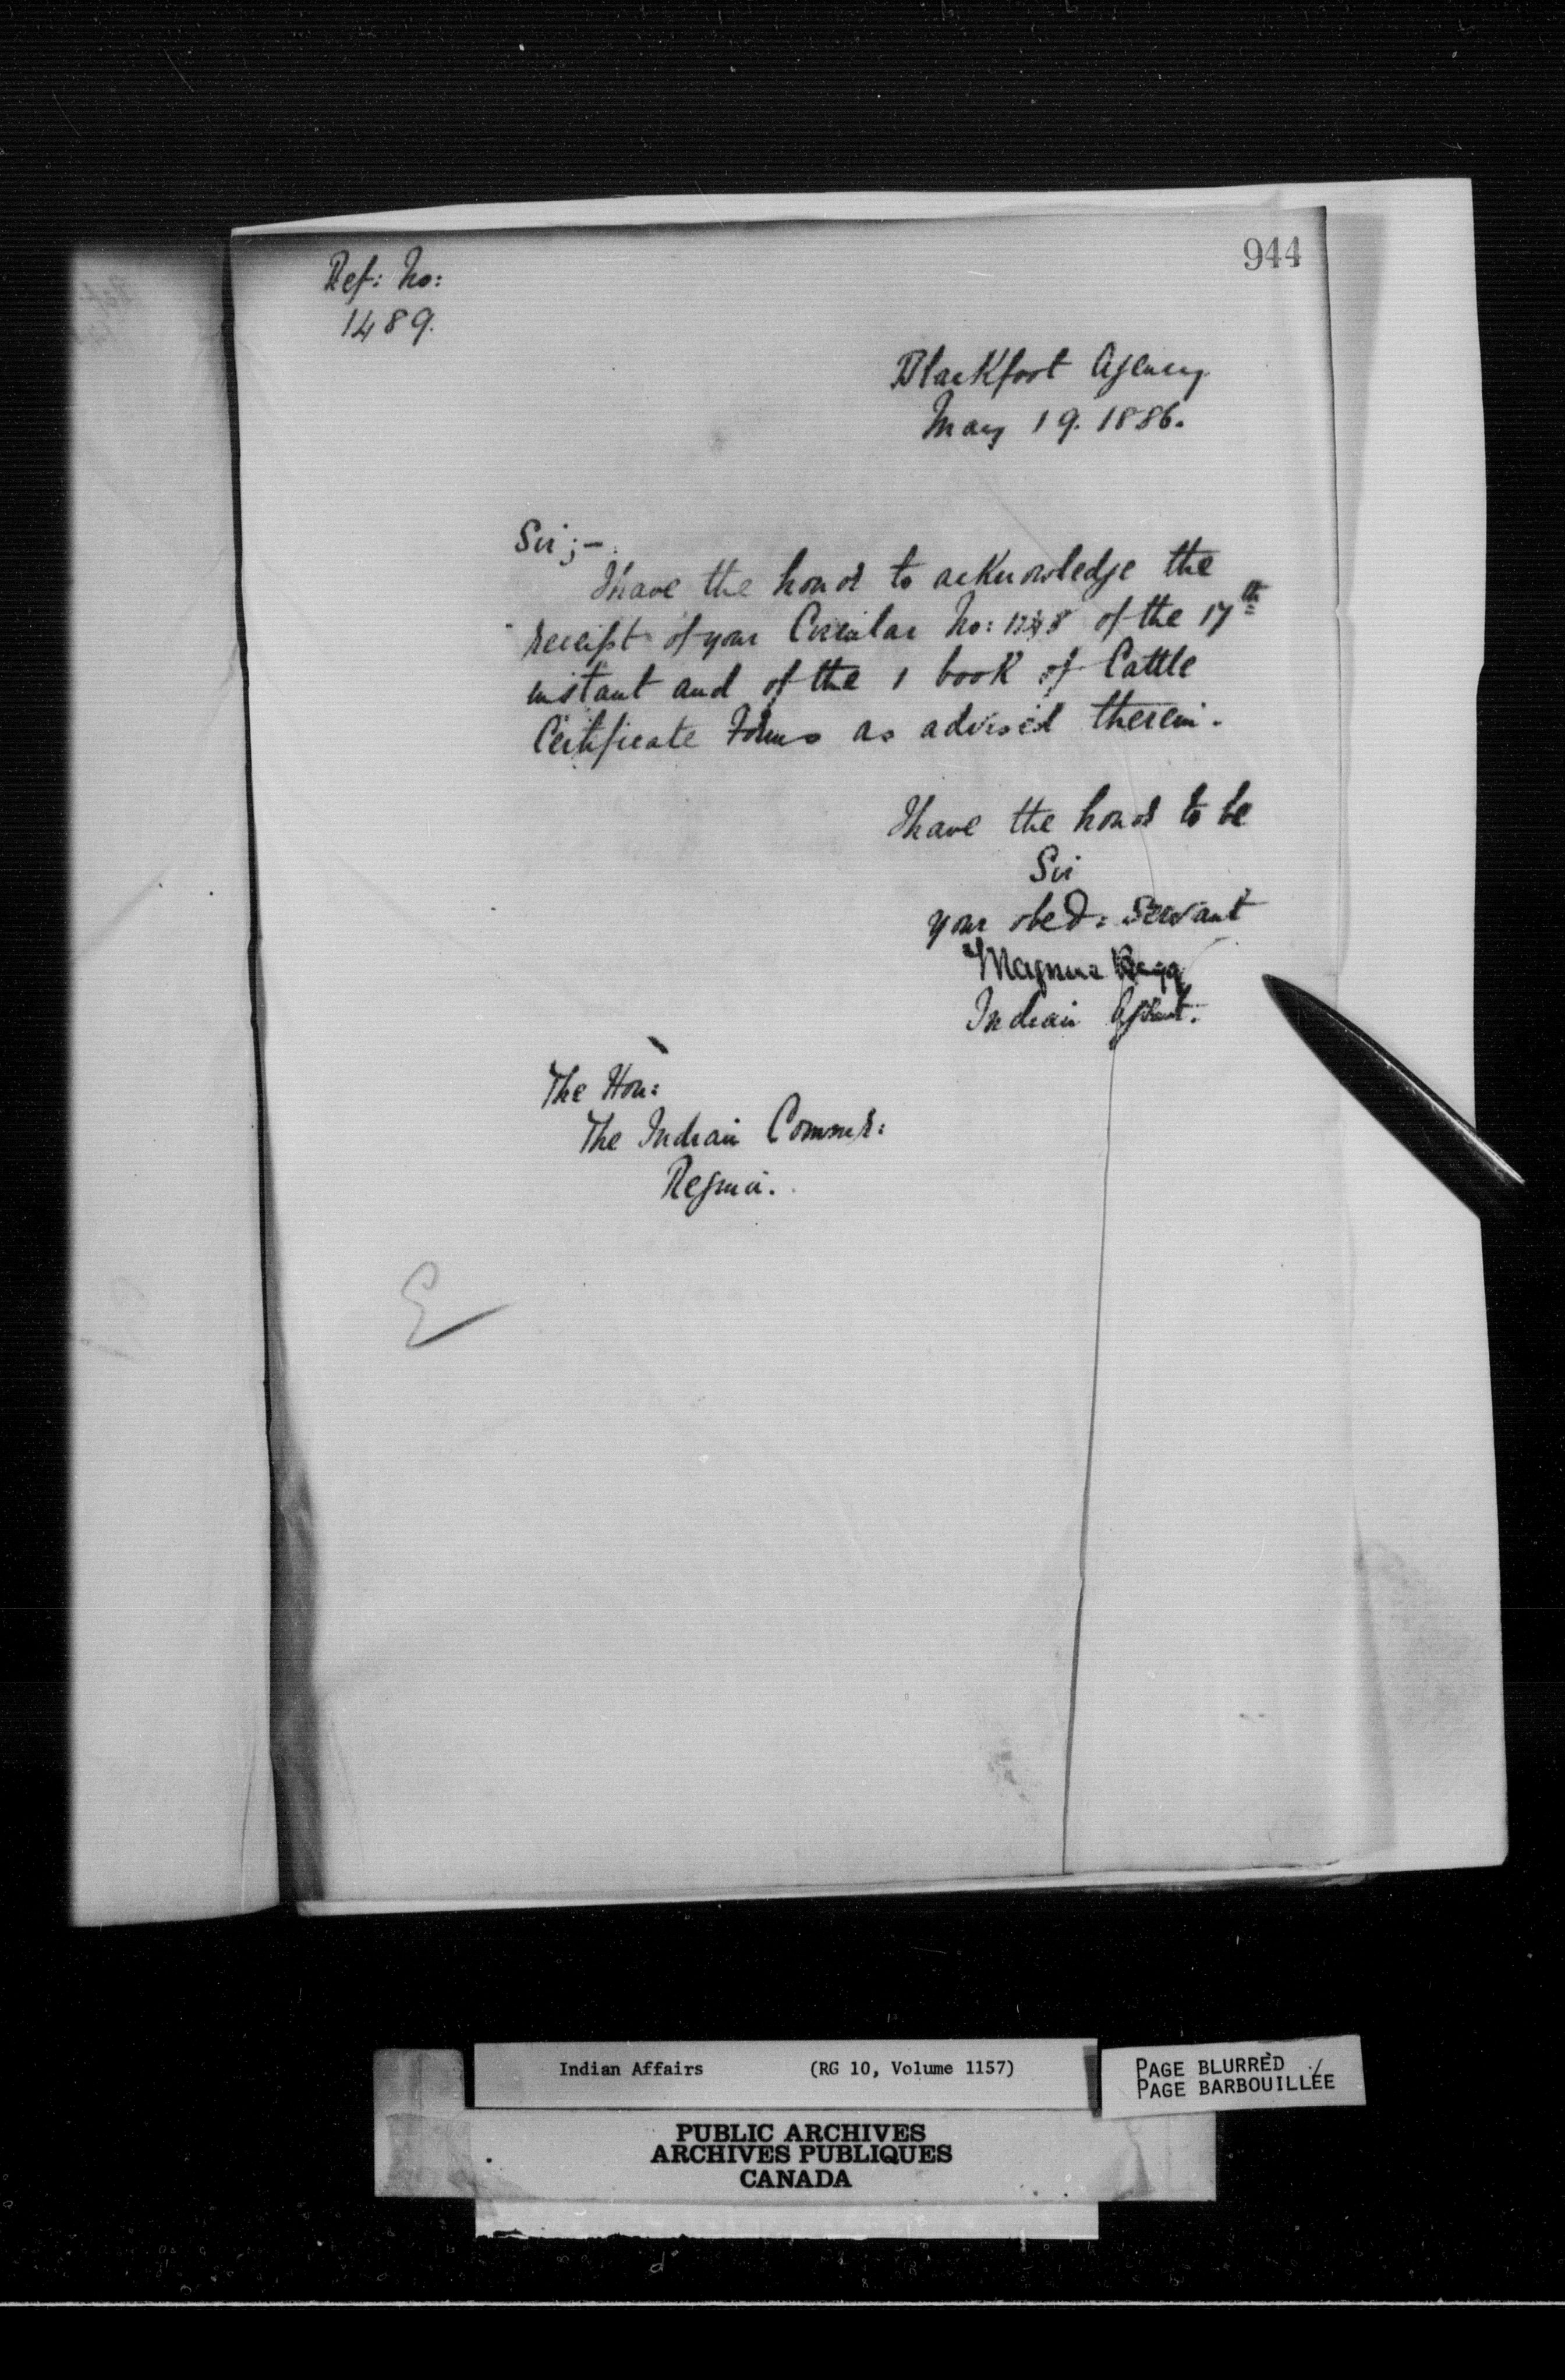 944
Ref: No:
1489.
Blackfoot Agency
May 19. 1886.
Sir;-
I have the honor to acknowledge the
receipt of your Circular No: of the 17th
instant and of the 1 book of Cattle
Certificate Forms as advised therein.
I have the honor to be
Sir
your obed: Servant
Magnus Begg
Indian Agent.
The Hon:
The Indian Commr:
Regina.
E
Indian Affairs (RG 10, Volume 1157)
PAGE BLURRED
PAGE BARBOUILLÉE
PUBLIC ARCHIVES
ARCHIVES PUBLIQUES
CANADA